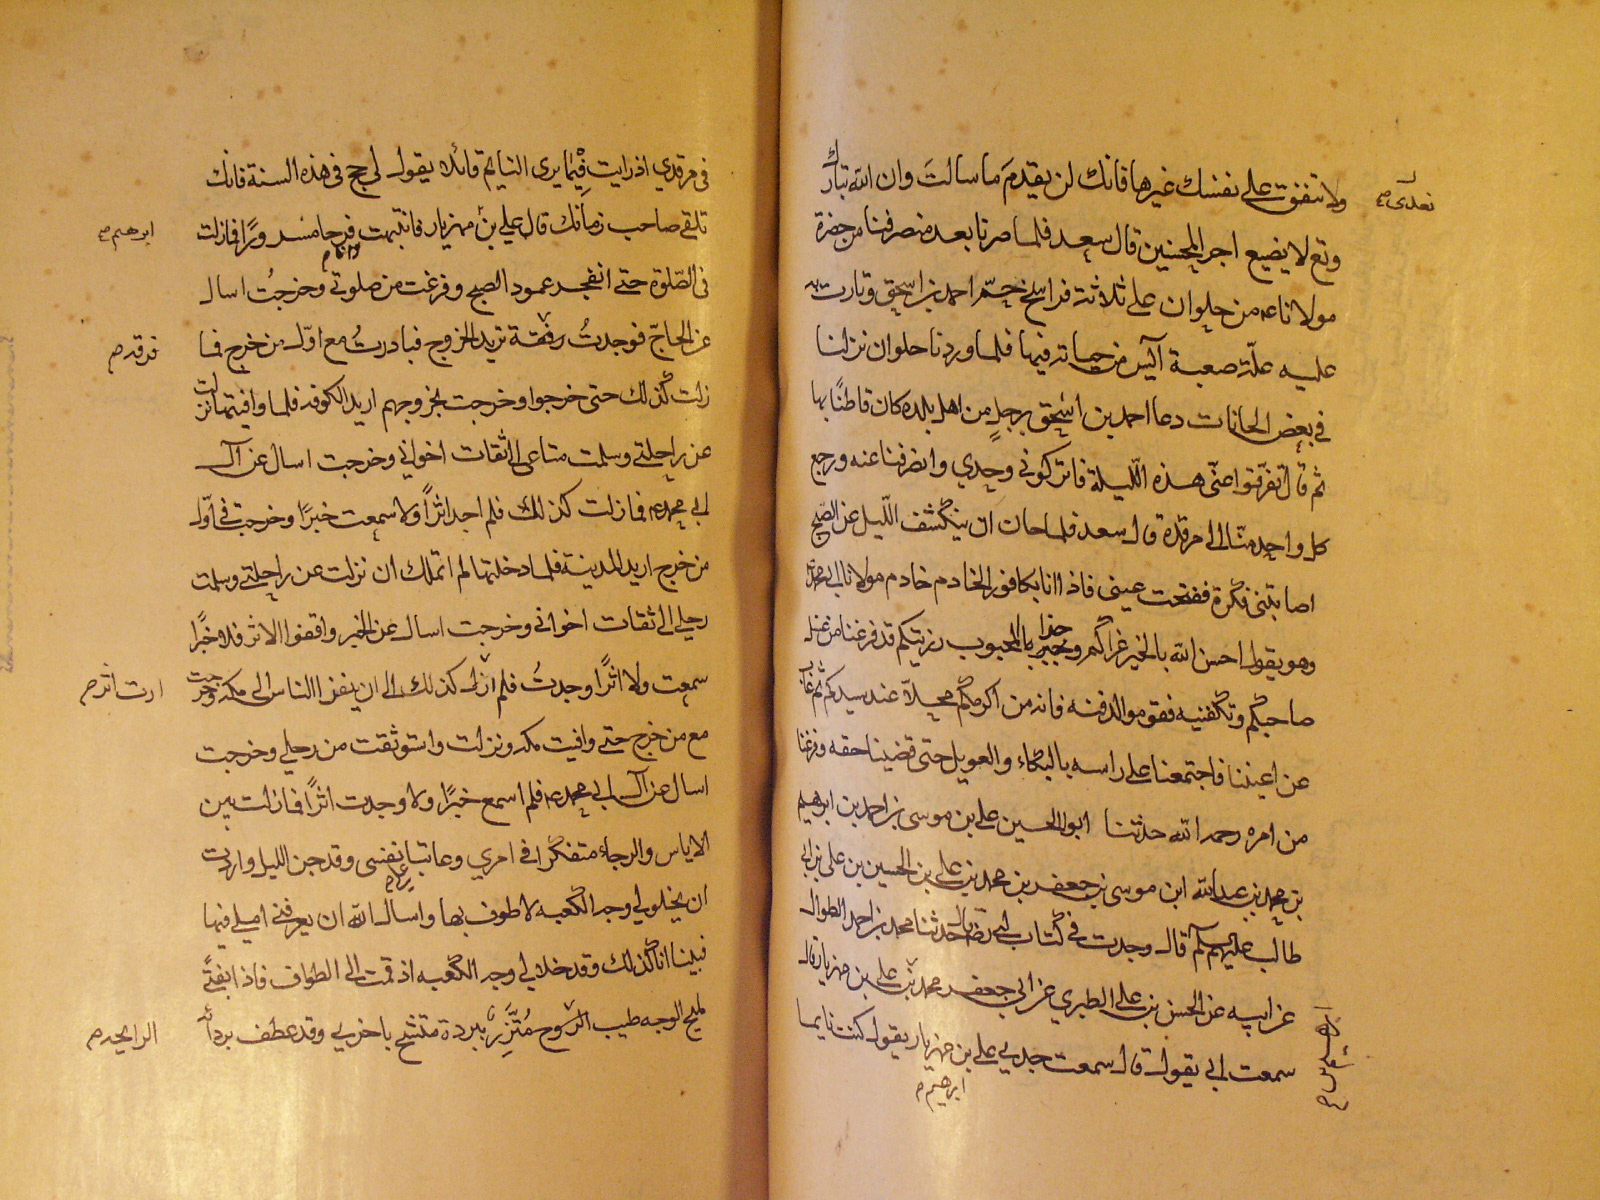 ولا تنفق على نفسك غيرها فانك لن يقدم ما سالت وان الله تبارك
وتع لا يضيع اجر المحسنين قال سعد فلما صرنا بعد منصرفنا من حضرة
مولانا عم من حلوان على ثلاثة فراسخ حمّ احمد بن اسحق وثارت
عليه علّة صعبة آيس من حياته فيها فلما وردنا حلوان نزلنا
فى بعض الخانات دعا احمد بن اسحق برجلٍ من اهل بلده كان قاطنًا بها
ثم قال تفرّقوا عنّى هذه اللّيلة فاتركونى وحدي وانصرفنا عنه ورجع
كل واحد منّا الى مرقده قال سعد فلما حان ان ينكشف اللّيل عن الصّبح
اصابتنى فكرة ففتحت عينى فاذا انا بكافور الخادم خادم مولانا ابى محمد عم
وهو يقول احسن الله بالخير عزاكم وجبر بالمحبوب رزيتكم قد فرغنا من غسل
صاحبكم وتكفنيه فقوموا لدفنه فانه من اكرمكم محلاّ عند سيدكم ثم غاب
عن اعيننا فاجتمعنا على راسه بالبكاء والعويل حتى قضينا حقه وفرغنا
من امره رحمه الله حدثنا ابو الحسين على بن موسى بن احمد بن ابرهيم
بن محمد بن عبدالله ابن موسى بن جعفر بن محمد بن على بن الحسين بن على بن ابى
طالب عليهم السلم قال وجدت فى كتاب ابى رضه قال حدثنا محمد بن احمد الطوال
عن ابيه عن الحسن بن على الطبري عن ابى جعفر محمد بن على بن مهزيار قال
سمعت ابى يقول قال سمعت جدى على بن مهزيار يقول كنت نايما
ابرهيم م
فى مرقدي اذ رايت فيما يرى النايم قائلا يقول لى حج فى هذه السنة فانك
تلقى صاحب زمانك قال على بن مهزيار فانتبهت فرحا مسرورًا فما زلت
ابرهيم م
فى الصّلوة حتى انفجر عمود الصبح وفرغت من صلوتى وخرجتُ اسال
عن الحاجّ فوجدتُ رفقة تريد الخروج فبادرتُ مع اوّل من خرج فما
فرقه م
زلت كذلك حتى خرجوا وخرجت بخروجهم اريد الكوفه فلما وافيتها نزلت
عن راحلتى وسلمت متاعى الى ثقات اخوانى وخرجت اسال عن آل
ابى محمد عم فما زلت كذلك فلم اجد اثرًا ولا سمعت خبرًا وخرجت فى اوّل
من خرج اريد المدينة فلما دخلتها لم اتملك ان نزلت عن راحلتى وسلمت
رحلى الى ثقات اخوانى وخرجت اسال عن الخبر واقفوا الاثر فلا خبرًا
سمعت ولا اثرًا وجدتُ فلم ازل كذلك الى ان ينفر الناس الى مكه وخرجت
مع من خرج حتى وافيت مكه ونزلت واستوثقت من رحلى وخرجت
اسال عن آل ابى محمد عم فلم اسمع خبرًا ولا وجدت اثرًا فما زلت بين
الاياس والرجاء متفكرا فى امري وعاتبا نفسى وقد جن الليل واردت
ان يخلو لى وجه الكعبه لاطوف بها واسال الله ان يعرفنى املى فيها
فبينا انا كذلك وقد خلا لى وجه الكعبه اذ قمت الى الطواف فاذا بفتًى
مليح الوجه طيب الروح متّزر ببردة متشح باخرى وقد عطف بردآئه
الرايحه م